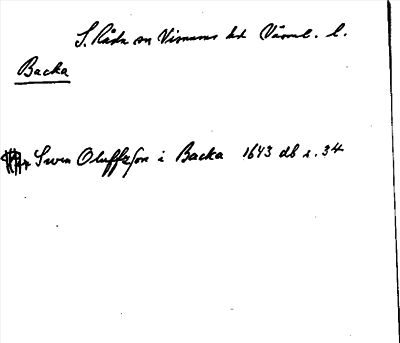 S. Råda sn Visnums hd Värml. l.
Backa
Swen Oluffzson i Backa 1643 db s. 34